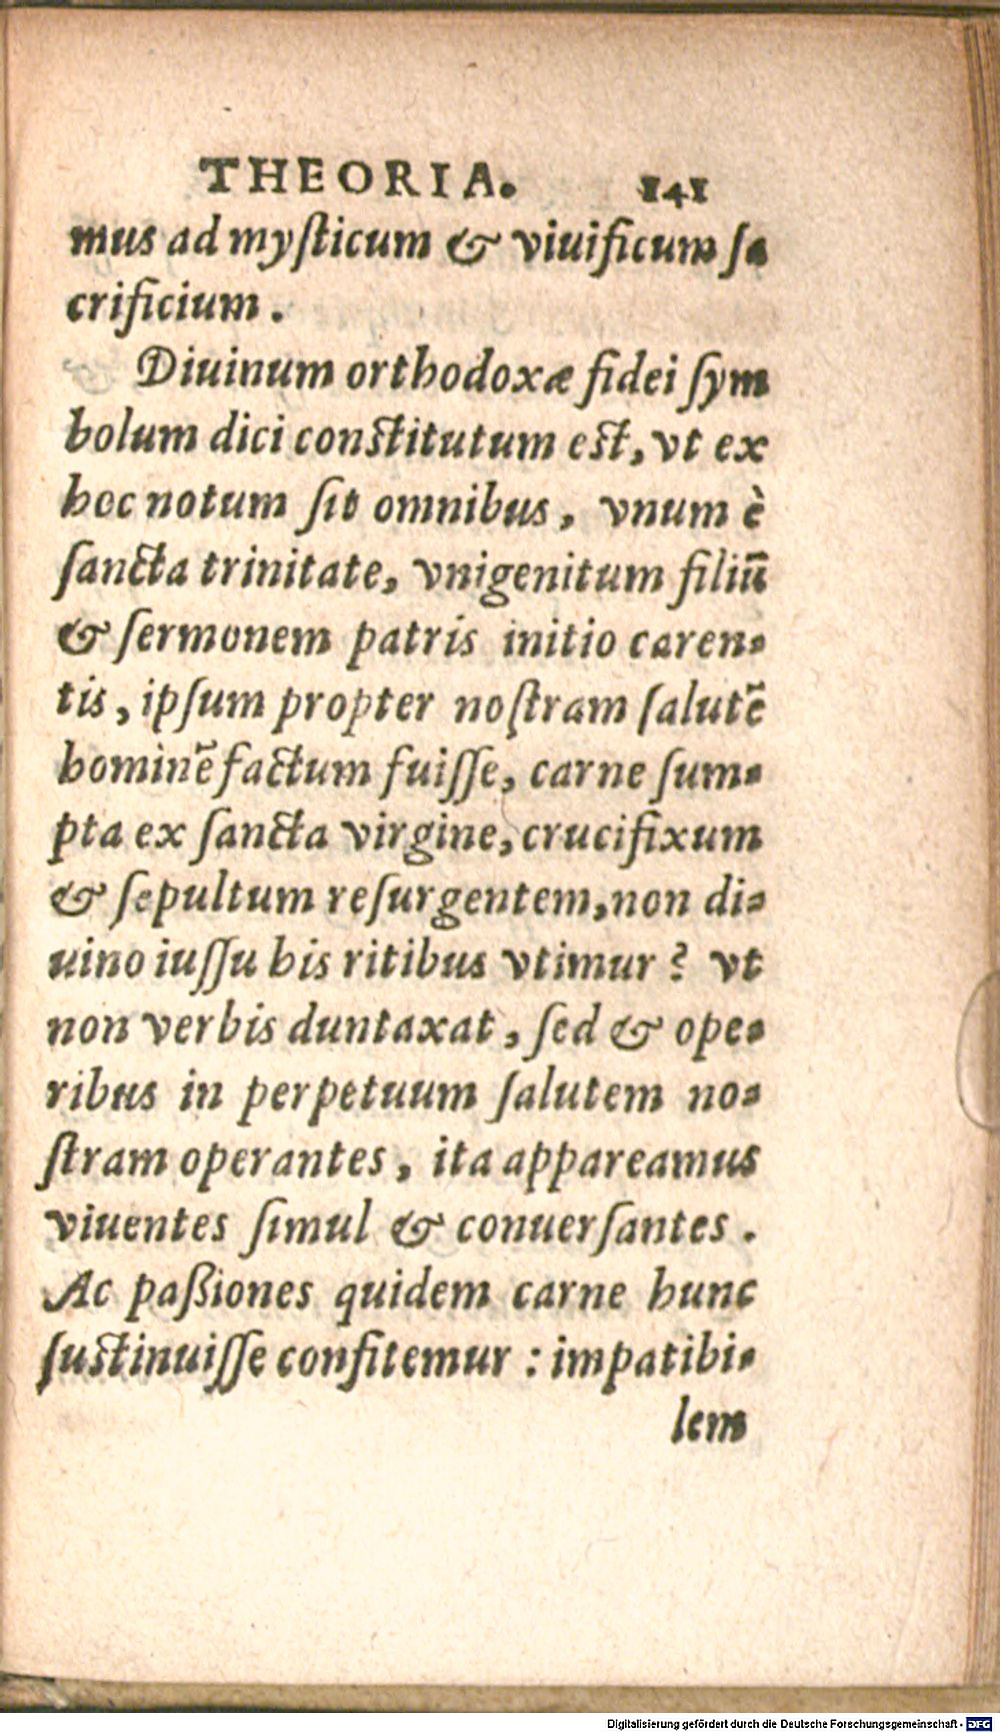 THEORIA. 141
mus ad myſticum & viuificum ſa
crificium.
Diuinum orthodoxæ fidei ſym
bolum dici conſtitutum eſt, vt ex
hoc notum ſit omnibus, vnum è
ſancta trinitate, vnigenitum filiū
& ſermonem patris initio caren-
tis, ipſum propter noſtram ſalutē
hominē factum fuiſſe, carne ſum-
pta ex ſancta virgine, crucifixum
& ſepultum reſurgentem, non di-
uino iuſſu his ritibus vtimur? vt
non verbis duntaxat, ſed & ope-
ribus in perpetuum ſalutem no-
ſtram operantes, ita appareamus
viuentes ſimul & conuerſantes.
Ac paßiones quidem carne hunc
ſuſtinuiſſe confitemur: impatibi-
lem
Digitalisierung gefördert durch die Deutsche Forschungsgemeinschaft - DFG